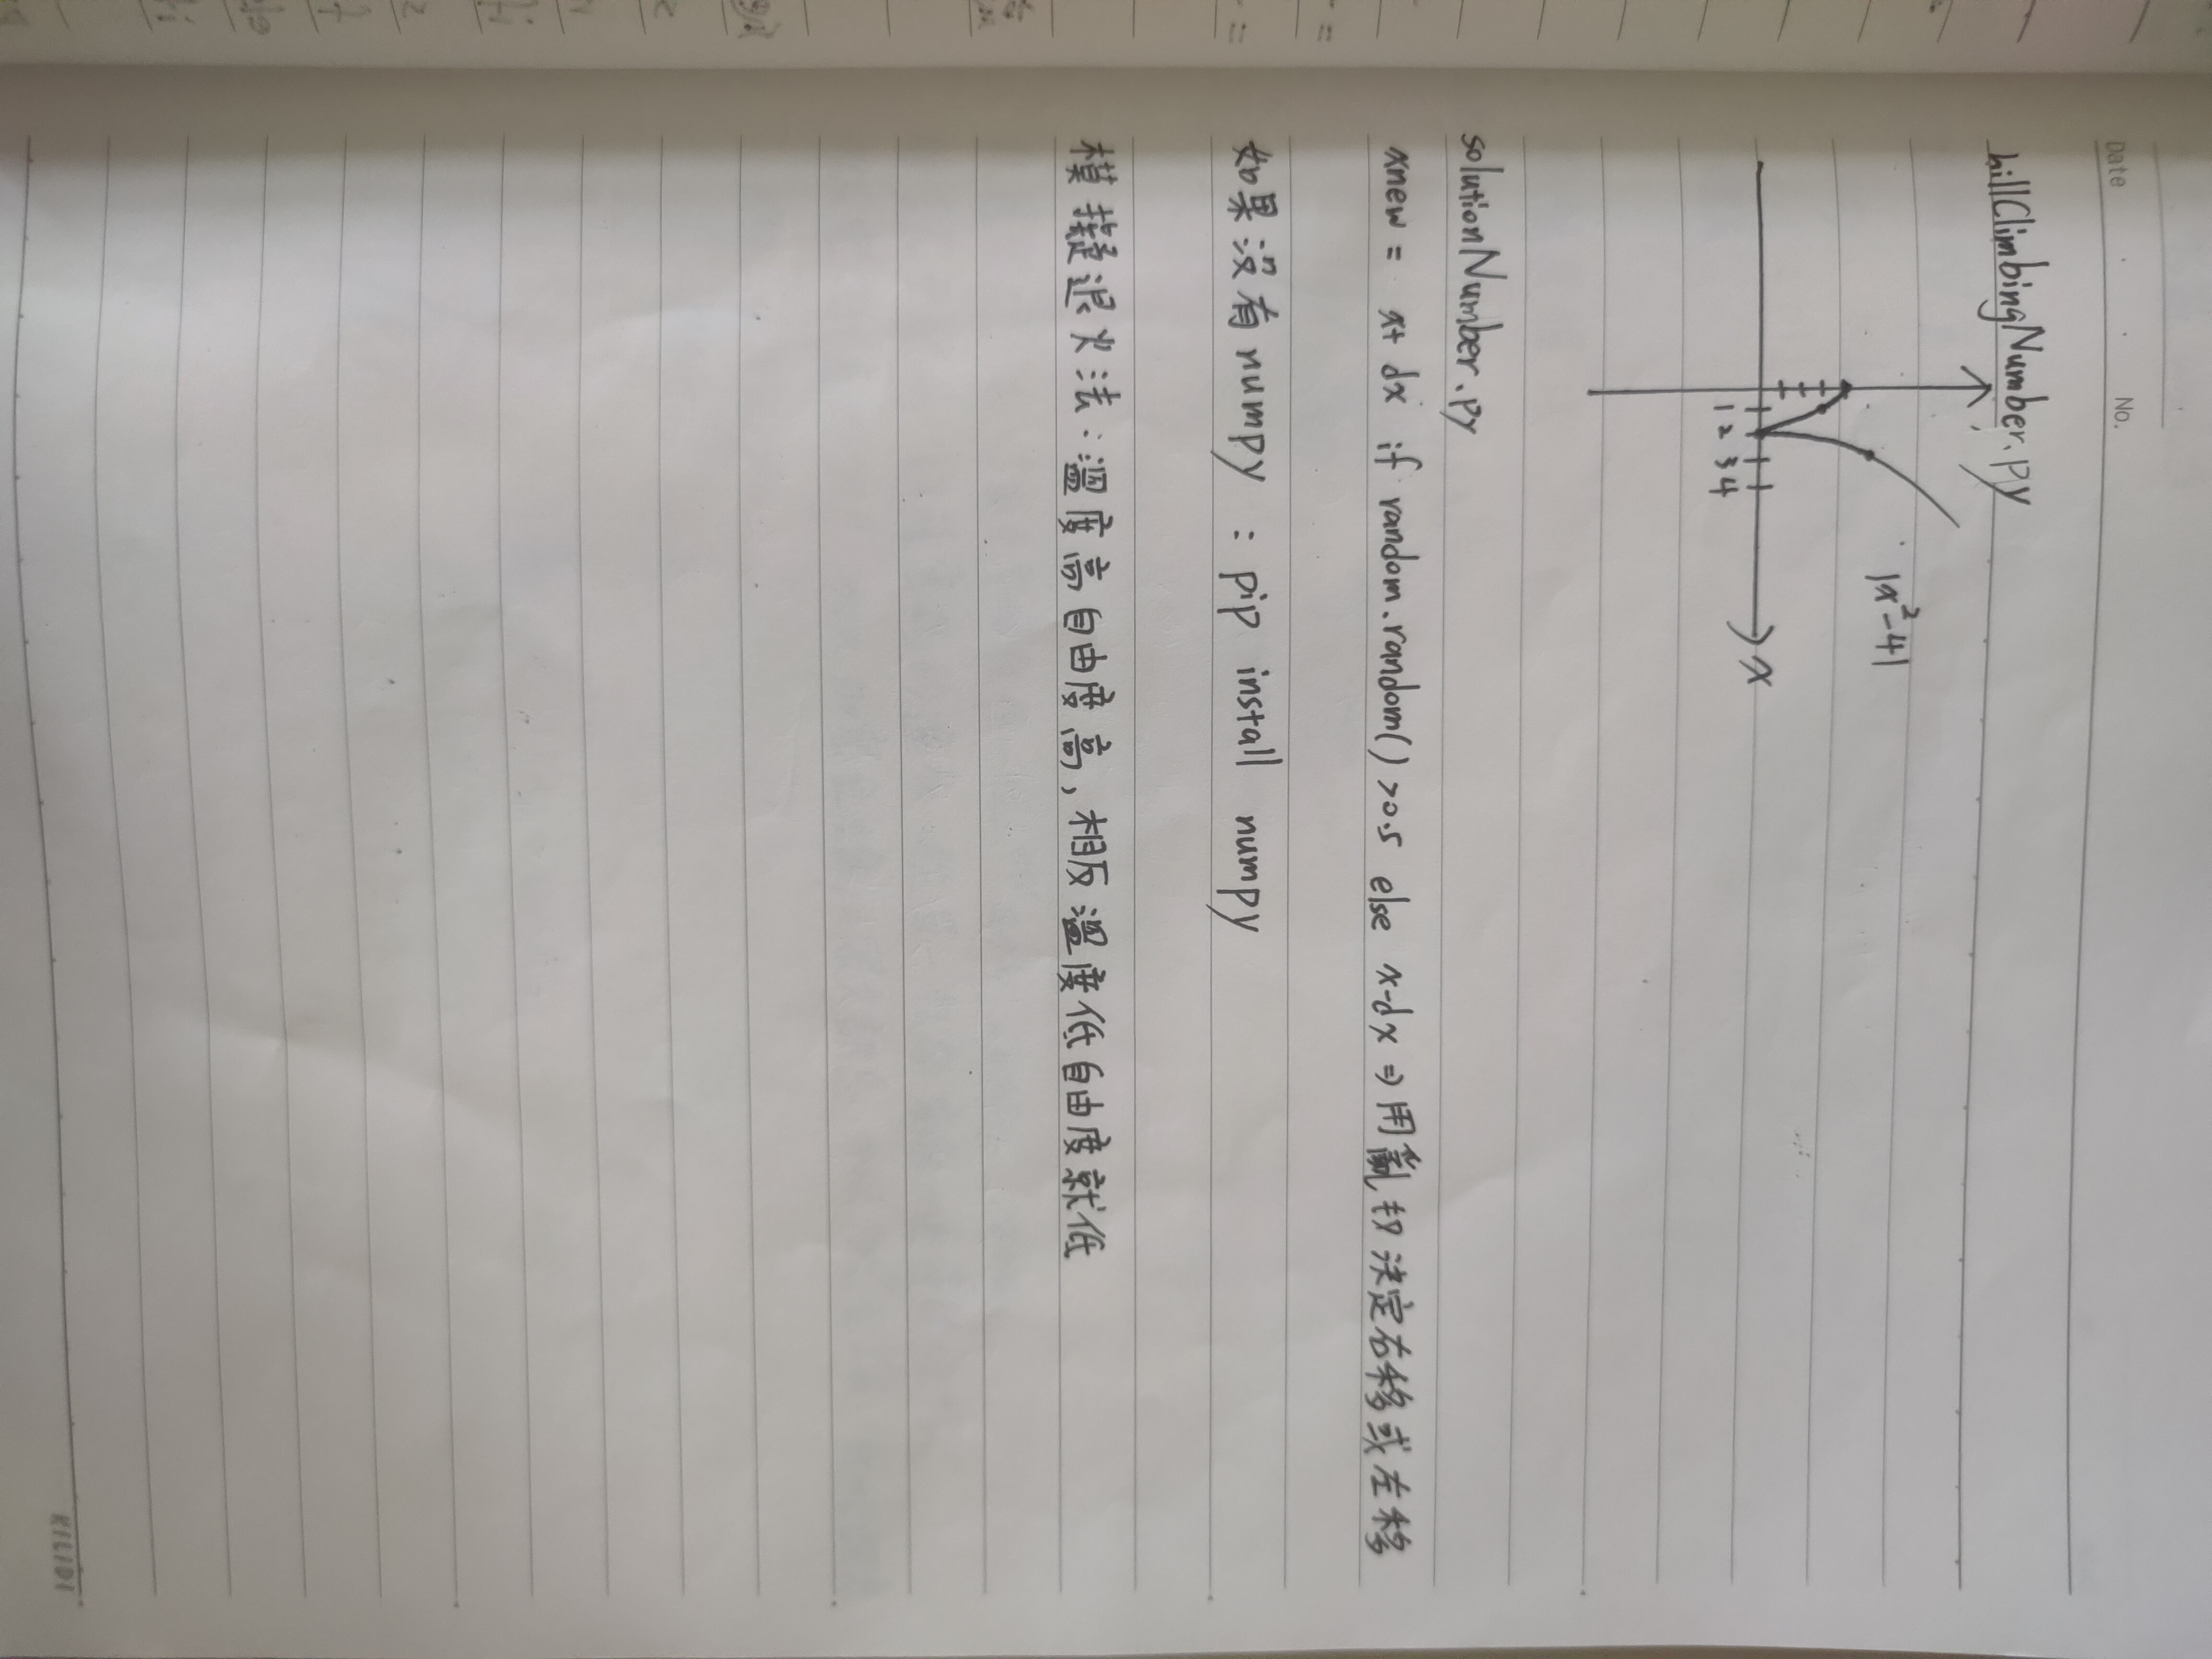 Date
No.
hillClimbingNumber.py
|x²-4|
x
1 2 3 4
solutionNumber.py
xnew = x+ dx if random.random() >0.5 else x-dx ⇒ 用亂 決定右移或左移
如果沒有numpy : pip install numpy
模擬退火法:溫度高自由度高,相反溫度低自由度就低
KILIDI